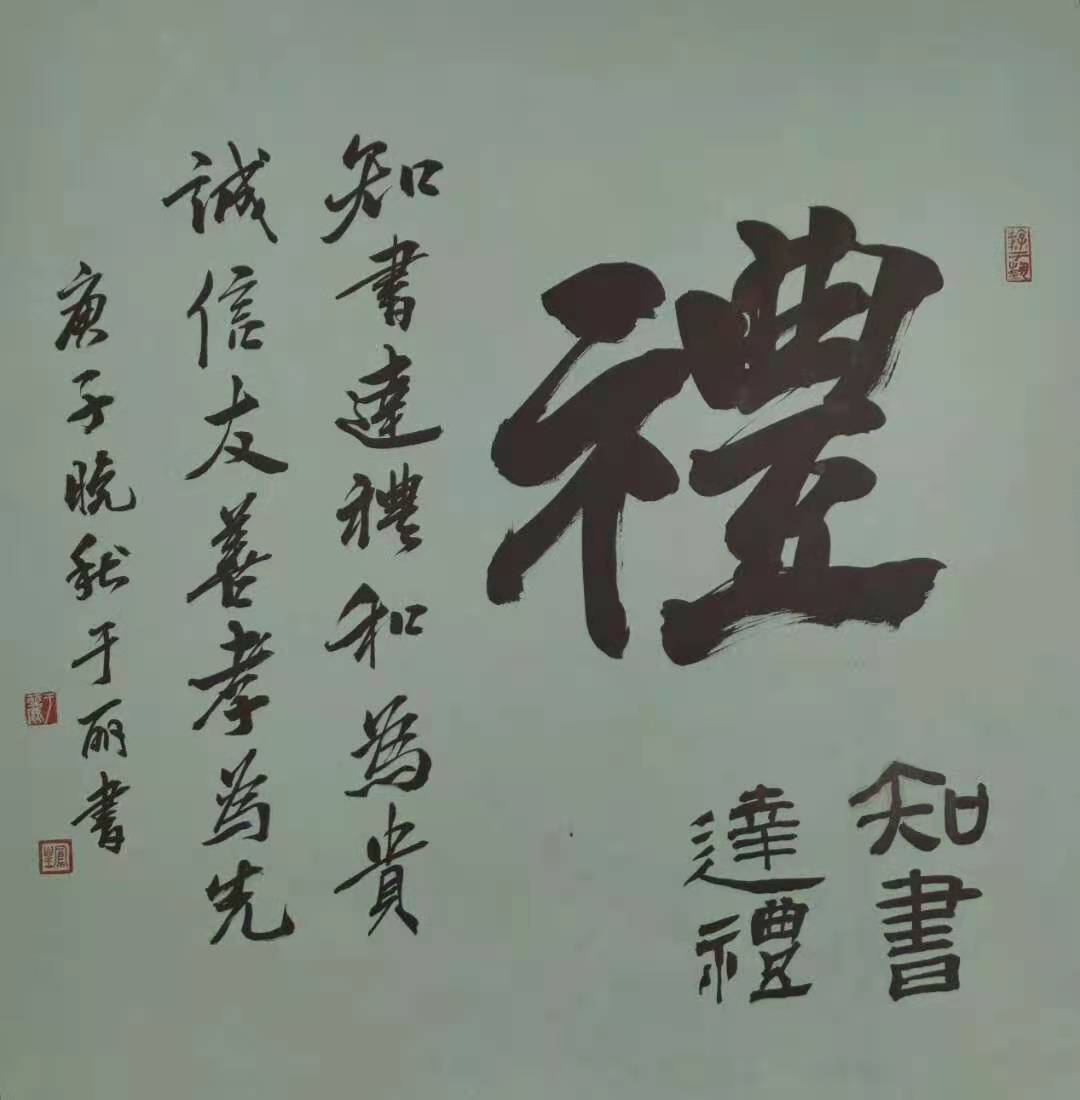 禮
知書
達禮
知書達禮和為貴
誠信友善孝為先
庚子晚秋于丽書